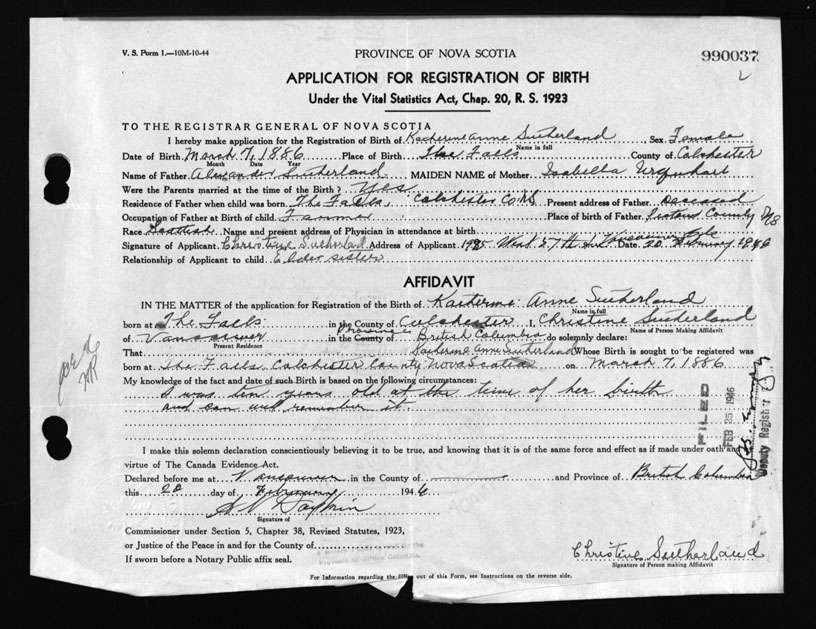 V. S. Form 1.—10M-10-44
PROVINCE OF NOVA SCOTIA
990037
2
APPLICATION FOR REGISTRATION OF BIRTH
Under the Vital Statistics Act, Chap. 20, R. S. 1923
TO THE REGISTRAR GENERAL OF NOVA SCOTIA
I hereby make application for the Registration of Birth of Katherine Anne Sutherland Sex Female
Name in full
Date of Birth March 7, 1886 Place of Birth The Falls County of Colchester
Month Date Year
Name of Father Alexander Sutherland MAIDEN NAME of Mother Isabella Urquhart
Were the Parents married at the time of Birth? Yes
Residence of Father when child was born The Falls, Colchester Co NS Present address of Father Deceased
Occupation of Father at Birth of child Farmer Place of birth of Father Pictou County NS
Race Scottish Name and present address of Physician in attendance at birth
Signature of Applicant Christine Sutherland Address of Applicant West 27th Ave Vancouver Date 20 February 1946
Relationship of Applicant to child Elder sister
AFFIDAVIT
IN THE MATTER of the application for Registration of the Birth of Katherine Anne Sutherland
Name in full
born at The Falls in the County of Colchester I, Christine Sutherland
Name of Person Making Affidavit
of Vancouver in the County of Province British Columbia do solemnly declare:
Present Residence
That Katherine Anne Sutherland Whose Birth is sought to be registered was
born at The Falls Colchester County Nova Scotia on March 7, 1886
My knowledge of the fact and date of such Birth is based on the following circumstances:
I was ten years old at the time of her birth
and can well remember it.
FILED
FEB 25 1946
Deputy Registrar
I make this solemn declaration conscientiously believing it to be true, and knowing that it is of the same force and effect as if made under oath and
virtue of The Canada Evidence Act.
Declared before me at Vancouver in the County of and Province of British Columbia
this 20 day of February 1946
Signature of
Commissioner under Section 5, Chapter 38, Revised Statutes, 1923,
or Justice of the Peace in and for the County of
If sworn before a Notary Public affix seal.
Christine Sutherland
Signature of Person making Affidavit
For Information regarding the filling out of this Form, see Instructions on the reverse side.